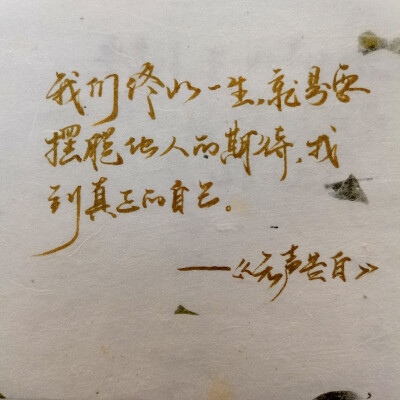 我们终此一生,就是要
摆脱他人的期待,找
到真正的自己。
——《无声告白》